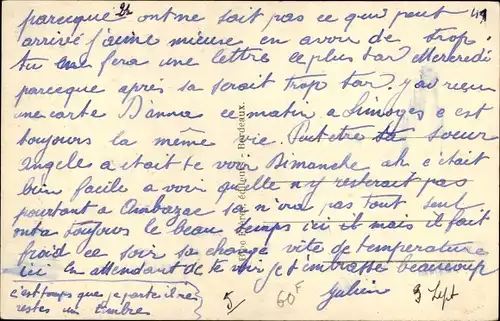 parceque ont ne sait pas ce qui peut
arrivé j'aime mieuse en avoir de trop.
tu fera une lettre le plus tar Mercredi
parceque après sa serait trop tar. y'ai reçu
une carte D'anna ce matin a Limoges c est
toujours la même vie. Peut etre ta soeur
angele a etait te voir Dimanche ah c'était
bien facile a voir qu'elle n'y resterait pas
pourtant a Ambazac sa n'ira pas tout seul
toujours le beau temps ici il mais il fait
froid ce soir sa change vite de temperature
ici En attendant de te voir je t'embrasse beaucoup
c'est temps que je parte il ne
restes un timbre
5
60F
Julien
3 Sept
49
éditeurs, Bordeaux.